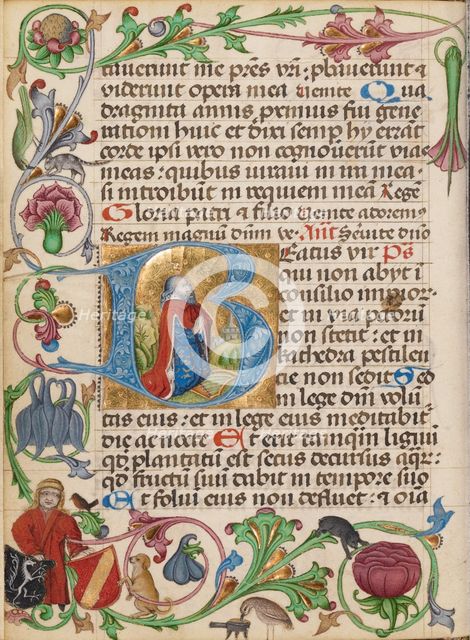 taverunt me pr̄es vr̄i: p̄baverunt &
viderunt opera mea venite Qua
draginta annis p̄ximus fui gene
rationi huic et dixi semp hy errāt
corde ipsi vero non cognoverūt vias
meas: quibus iuravi in ira mea
si introibūt in requiem meā Rege
Gloria patri & filio Venite adoremus
Regem magnū dn̄m ve. Ant Servite dn̄o
Beatus vir Ps
qui non abyt ī
consilio impior
et in via pctōrū
non stetit: et in
kathedra pestilen
cie non sedit Sed
in lege dn̄i volū
tas eius: et in lege eius meditabit
die ac nocte Et erit tamqm̄ lignū
qd plantatū est secus decursus aqr̄:
qd fructū suū dabit in tempore suo
Et foliū eius non defluet: & oīa
Heritage
Heritage